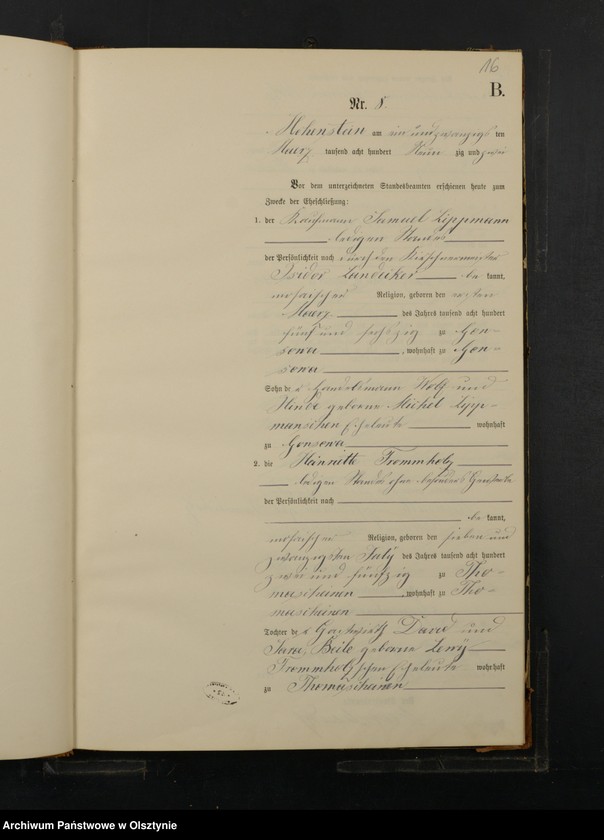 16
B.
Nr. 8
Hohenstein am ein und zwanzigs ten
Maerz tausend acht hundert Neun zig und zwei
Vor dem unterzeichneten Standesbeamten erschienen heute zum
Zwecke der Eheschließung:
1. der Kaufmann Samuel Lippmann
ledigen Standes
der Persönlichkeit nach durch den
Isidor be kannt,
mosaischer Religion, geboren den ersten
Maerz des Jahres tausend acht hundert
fünf und sechszig zu Gon-
sowa, wohnhaft zu Gon-
sowa
Sohn de s Handelsmann Wolf und
geborene Michel Lipp-
mannschen Eheleute wohnhaft
zu Gonsowa
2. die Henriette Frommholz
ledigen Standes ohne besonderes Gewerbe
der Persönlichkeit nach
be kannt,
mosaischer Religion, geboren den sieben und
zwanzigsten July des Jahres tausend acht hundert
zwei und fünfzig zu Tho-
mascheinen, wohnhaft zu Tho-
mascheinen
Tochter de s Gastwirth David und
Beile geborene Lewy
Frommholzschen Eheleute wohnhaft
zu Thomascheinen
Archiwum Państwowe w Olsztynie